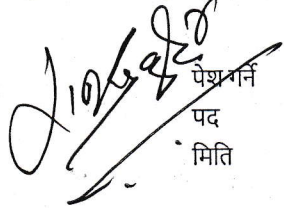 पेश गर्ने
पद
मिति